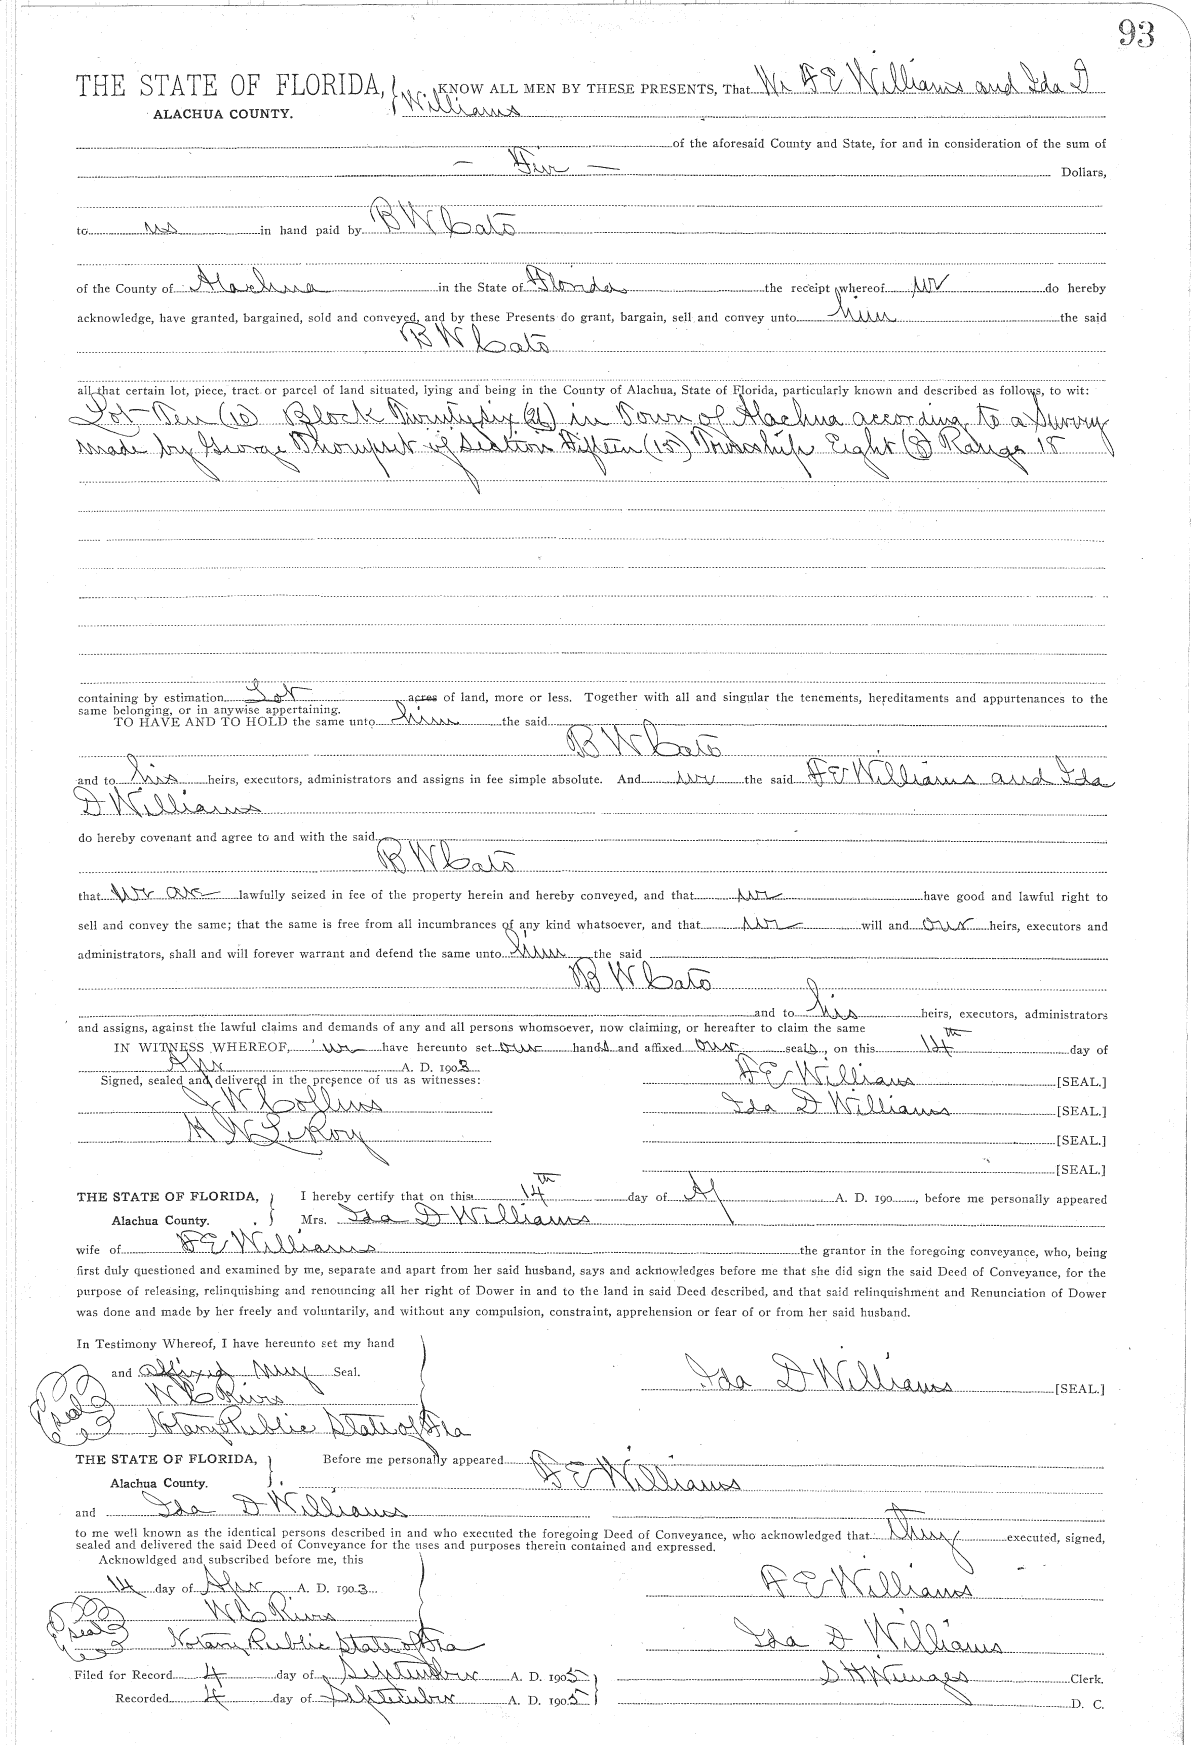 93
THE STATE OF FLORIDA, KNOW ALL MEN BY THESE PRESENTS, That We F E Williams and Ida D
ALACHUA COUNTY. Williams
of the aforesaid County and State, for and in consideration of the sum of
— Five — Dollars,
to us in hand paid by B W Cato
of the County of Alachua in the State of Florida the receipt whereof we do hereby
acknowledge, have granted, bargained, sold and conveyed, and by these Presents do grant, bargain, sell and convey unto him the said
B W Cato
all that certain lot, piece, tract or parcel of land situated, lying and being in the County of Alachua, State of Florida, particularly known and described as follows, to wit:
Lot Ten (10) Block Twenty six (26) in Town of Alachua according to a Survey
made by George Thompset of Section Fifteen (15) Township Eight (8) Range 18
containing by estimation Lot acres of land, more or less. Together with all and singular the tenements, hereditaments and appurtenances to the
same belonging, or in anywise appertaining.
TO HAVE AND TO HOLD the same unto him the said
B W Cato
and to his heirs, executors, administrators and assigns in fee simple absolute. And we the said F E Williams and Ida
D Williams
do hereby covenant and agree to and with the said
B W Cato
that we are lawfully seized in fee of the property herein and hereby conveyed, and that we have good and lawful right to
sell and convey the same; that the same is free from all incumbrances of any kind whatsoever, and that we will and our heirs, executors and
administrators, shall and will forever warrant and defend the same unto him the said
B W Cato
and to his heirs, executors, administrators
and assigns, against the lawful claims and demands of any and all persons whomsoever, now claiming, or hereafter to claim the same
IN WITNESS WHEREOF, we have hereunto set our hands and affixed our seals, on this 14th day of
Apr A. D. 1903
Signed, sealed and delivered in the presence of us as witnesses: F E Williams [SEAL.]
J W Collins Ida D Williams [SEAL.]
H N LeRoy [SEAL.]
[SEAL.]
THE STATE OF FLORIDA, I hereby certify that on this 14th day of Ap A. D. 190, before me personally appeared
Alachua County. Mrs. Ida D Williams
wife of F E Williams the grantor in the foregoing conveyance, who, being
first duly questioned and examined by me, separate and apart from her said husband, says and acknowledges before me that she did sign the said Deed of Conveyance, for the
purpose of releasing, relinquishing and renouncing all her right of Dower in and to the land in said Deed described, and that said relinquishment and Renunciation of Dower
was done and made by her freely and voluntarily, and without any compulsion, constraint, apprehension or fear of or from her said husband.
In Testimony Whereof, I have hereunto set my hand
and affixed my Seal. Ida D Williams [SEAL.]
W C Rivrs
seal Notary Public State of Fla
THE STATE OF FLORIDA, Before me personally appeared F E Williams
Alachua County.
and Ida D Williams
to me well known as the identical persons described in and who executed the foregoing Deed of Conveyance, who acknowledged that they executed, signed,
sealed and delivered the said Deed of Conveyance for the uses and purposes therein contained and expressed.
Acknowldged and subscribed before me, this
14 day of Apr A. D. 1903 F E Williams
W C Rivrs
seal Notary Public State of Fla Ida D Williams
Filed for Record 4 day of September A. D. 1905 S H Wienges Clerk.
Recorded 4 day of September A. D. 1905 D. C.